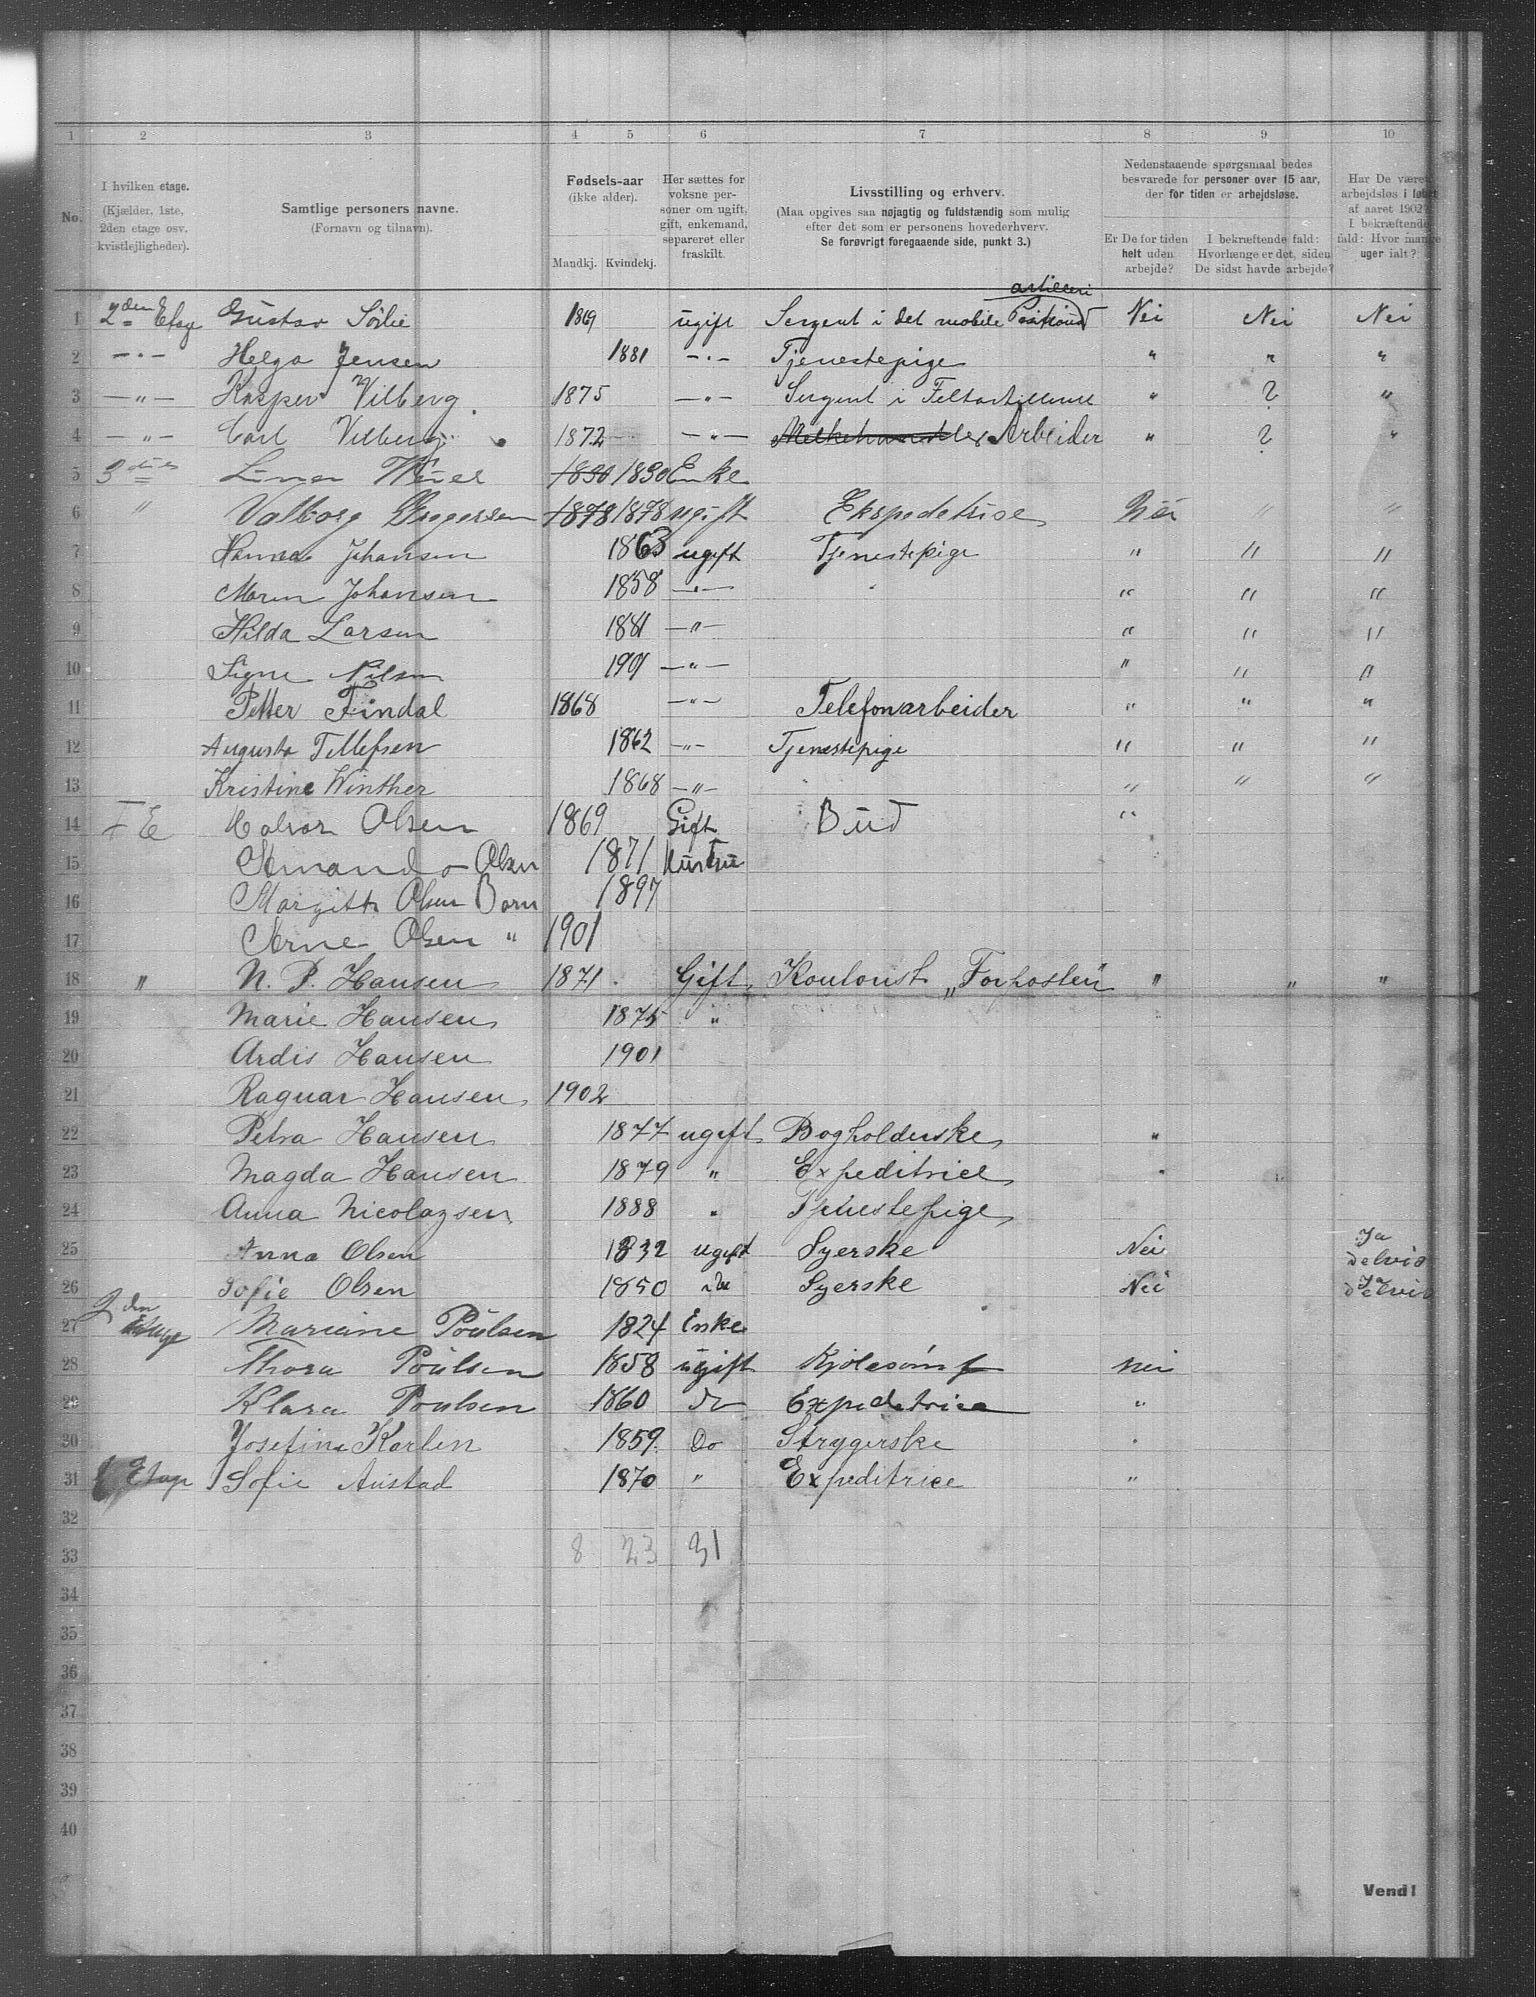 1 2 3 4 5 6 7 8 9 10
No.
I hvilken etage. (Kjælder, 1ste, 2den etage osv. kvistlejligheder).
Samtlige personers navne. (Fornavn og tilnavn).
Fødsels-aar (ikke alder).
Mandkj. Kvindekj.
Her sættes for voksne personer om ugift, gift, enkemand, separeret eller fraskilt.
Livsstilling og erhverv.
(Maa opgives saa nøjagtig og fuldstændig som mulig efter det som er personens hovederhverv.
Se forøvrigt foregaaende side, punkt 3.)
Nedenstaaende spørgsmaal bedes besvarede for personer over 15 aar, der for tiden er arbejdsløse.
Er De for tiden helt uden arbejde?
I bekræftende fald: Hvorlænge er det, siden De sidst havde arbejde?
Har De været arbejdsløs i løbet af aaret 1902? I bekræftende fald: Hvor mange uger ialt?
artilleri
1 2den Etage Gustav Sörlie 1869 ugift Sergent i det mobile Nei Nei Nei
2 —"— Helga Jensen 1881 —"— Tjenestepige " " "
3 —"— Kasper Vilberg. 1875 —"— Sergent i Feltartilleriet " ? "
4 —"— Carl Vilberg 1872 —"— Melkehandler Arbeider " ? "
5 3die 1830 1830 Enke
6 " Valborg 1878 1878 ugift Ekspeditrise Nei " "
7 Hanna Johansen 1863 ugift Tjenestepige " " "
8 Maren Johansen 1858 —"— " " "
9 Hilda Larsen 1881 —"— " " "
10 Signe Nilsen 1901 —"— " " "
11 Petter Findal 1868 —"— Telefonarbeider " " "
12 Augusta Tellefsen 1862 —"— Tjenestepige " " "
13 Kristine Winther 1868 —"— " " "
14 E Halvor Olsen 1869 Gift Bud "
15 Amanda Olsen 1871 Hustru
16 Margith Olsen Barn 1897
17 Arne Olsen " 1901
18 " N. P. Hansen 1871 Gift Kontorist „Forposten" " " "
19 Marie Hansen 1875 "
20 Ardis Hansen 1901
21 Ragnar Hansen 1902
22 Petra Hansen 1877 ugift Bogholderske "
23 Magda Hansen 1879 " Expeditrice "
24 Anna Nicolaysen 1888 " Tjenestepige
25 Anna Olsen 1832 ugift Syerske Nei Ja delvis
26 Sofie Olsen 1850 do Syerske Nei Ja delvis
27 2den Etage Mariane Poulsen 1824 Enke
28 Thora Poulsen 1858 ugift Kjolesöm Nei
29 Klara Poulsen 1860 do Expedetrice "
30 Josefine Karlen 1859 Do Strygerske "
31 1 Etage Sofie Austad 1870 " Expeditrice "
32
33 8 23 31
34
35
36
37
38
39
40
Vend!